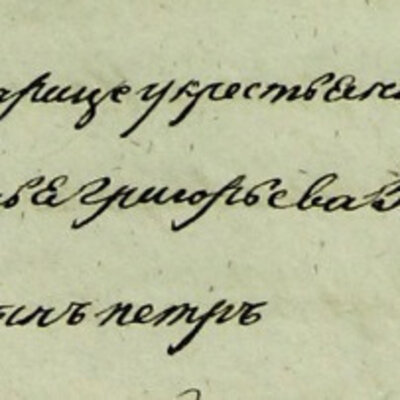 арице укрестьян
ья григорьева
сынъ петръ